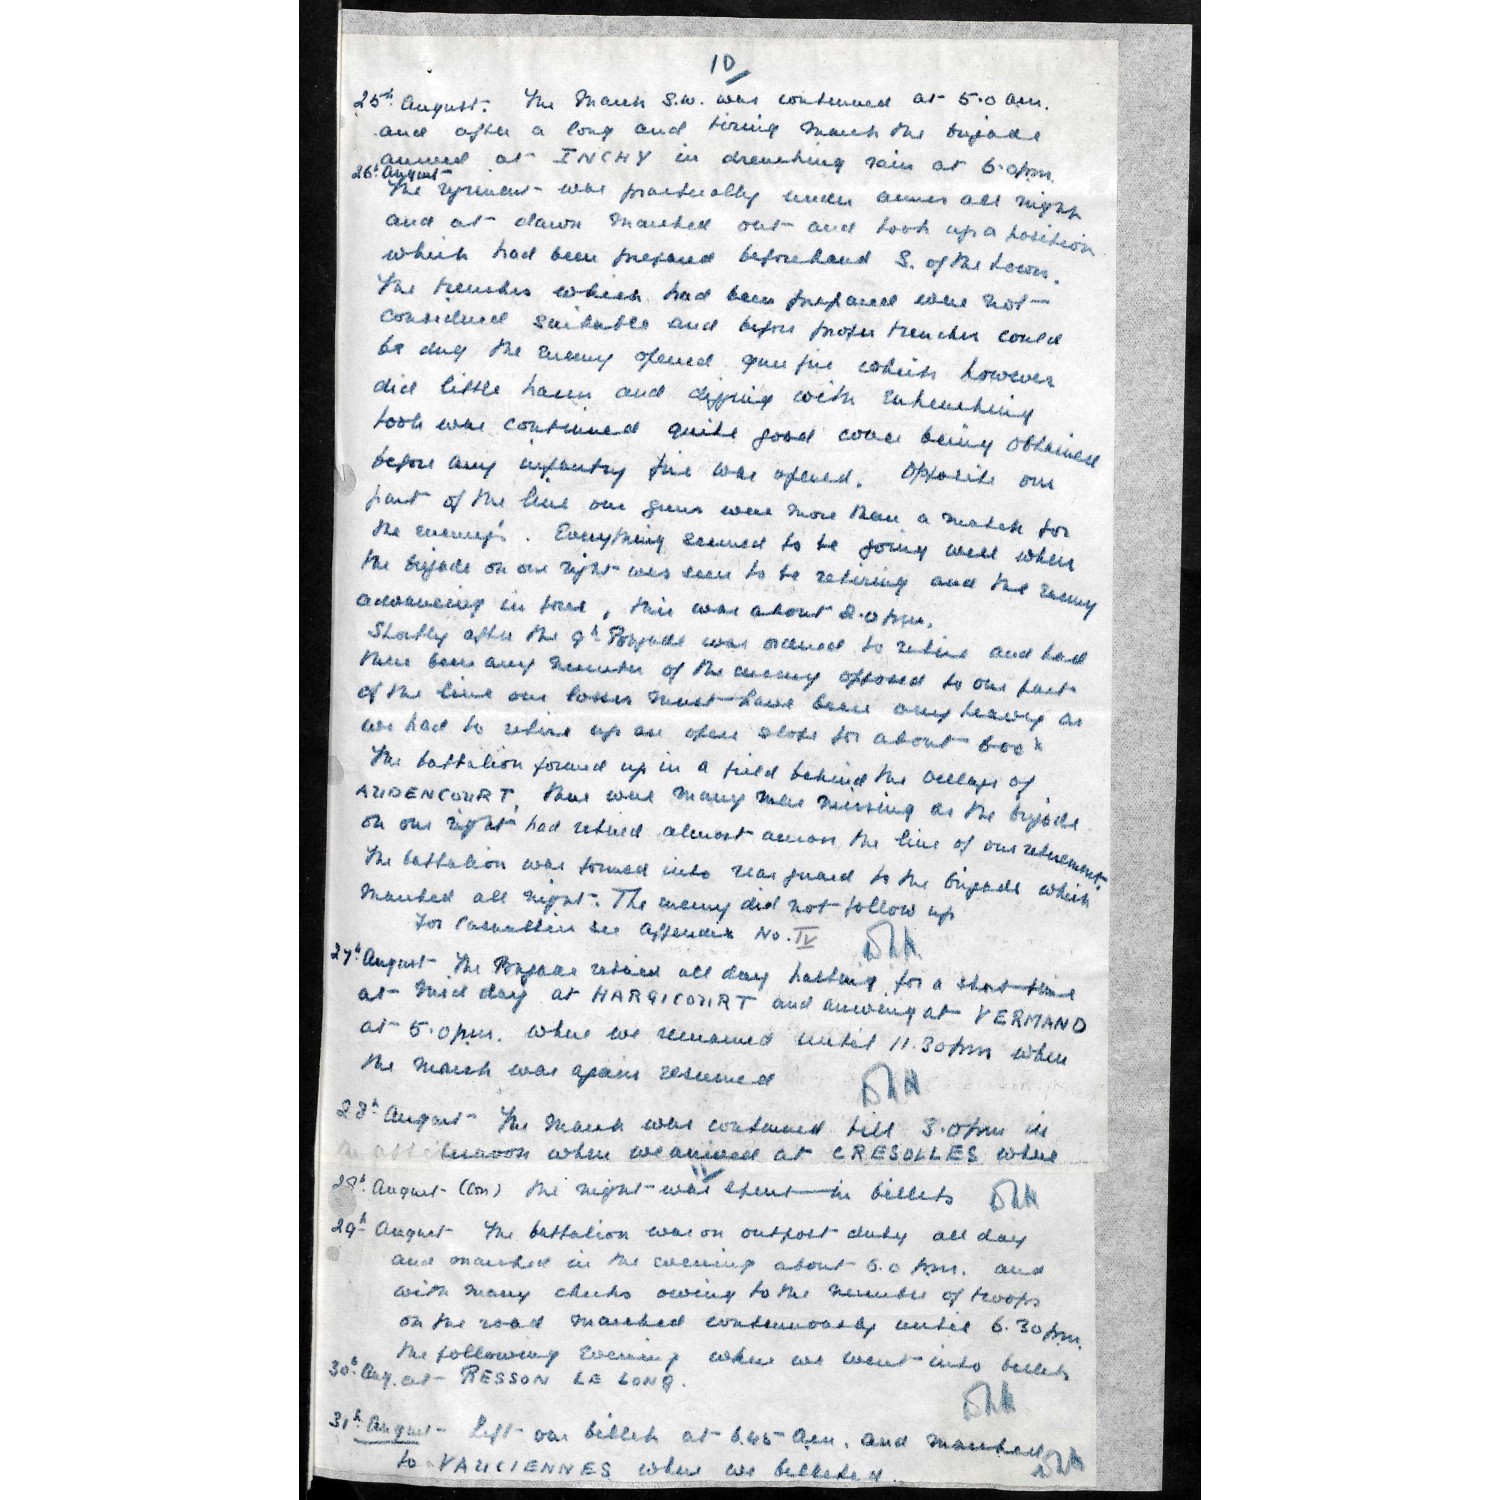 10/
25th August. The March S.W. was continued at 5.0 a.m.
and after a long and tiring march the brigade
arrived at INCHY in drenching rain at 6.0 p.m.
26th August
The regiment was practically under arms all night
and at dawn marched out and took up a position
which had been prepared beforehand S. of the town.
The trenches which had been prepared were not
considered suitable and before proper trenches could
be dug the enemy opened gun fire which however
did little harm and digging with entrenching
tools was continued quite good cover being obtained
before any infantry fire was opened. Opposite our
part of the line our guns were more than a match for
the enemy's. Everything seemed to be going well when
the brigade on our right was seen to be retiring and the enemy
advancing in force, this was about 2.0 p.m.
Shortly after the 9th Brigade was ordered to retire and had
there been any number of the enemy opposed to our part
of the line our losses must have been very heavy as
we had to retire up an open slope for about 600x
The battalion formed up in a field behind the village of
AUDENCOURT, there were many men missing as the brigade
on our right had retired almost across the line of our retirement.
The battalion was formed into rear guard to the brigade which
marched all night. The enemy did not follow up
For Casualties see Appendix No. IV
27th August The Brigade retired all day halting for a short time
at mid day at HARGICOURT and arriving at VERMAND
at 5.0 p.m. where we remained until 11.30 p.m when
the march was again resumed
28th August The March was continued till 3.0 p.m in
the afternoon when we arrived at CRESOLLES where
11
28th August (Con) the night was spent in billets
29th August The battalion was on outpost duty all day
and marched in the evening about 6.0 p.m. and
with many checks owing to the number of troops
on the road marched continuously until 6.30 p.m.
the following evening when we went into billets
30th Aug. at RESSON LE LONG.
31st August Left our billets at 6.45 a.m. and marched
to VAUCIENNES where we billeted